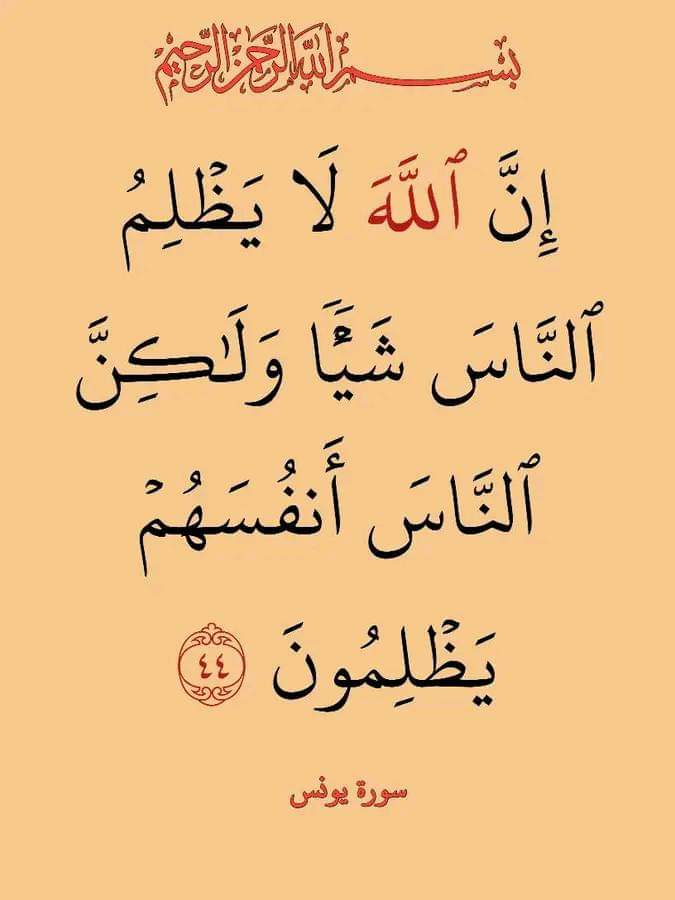 بسم الله الرحمن الرحيم
إِنَّ ٱللَّهَ لَا يَظْلِمُ
ٱلنَّاسَ شَيْـًٔا وَلَـٰكِنَّ
ٱلنَّاسَ أَنفُسَهُمْ
يَظْلِمُونَ ٤٤
سورة يونس